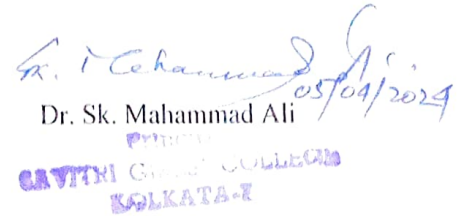 Sk. Mahammad Ali
05/04/2024
Dr. Sk. Mahammad Ali
SAVITRI GIRLS' COLLEGE
KOLKATA-7